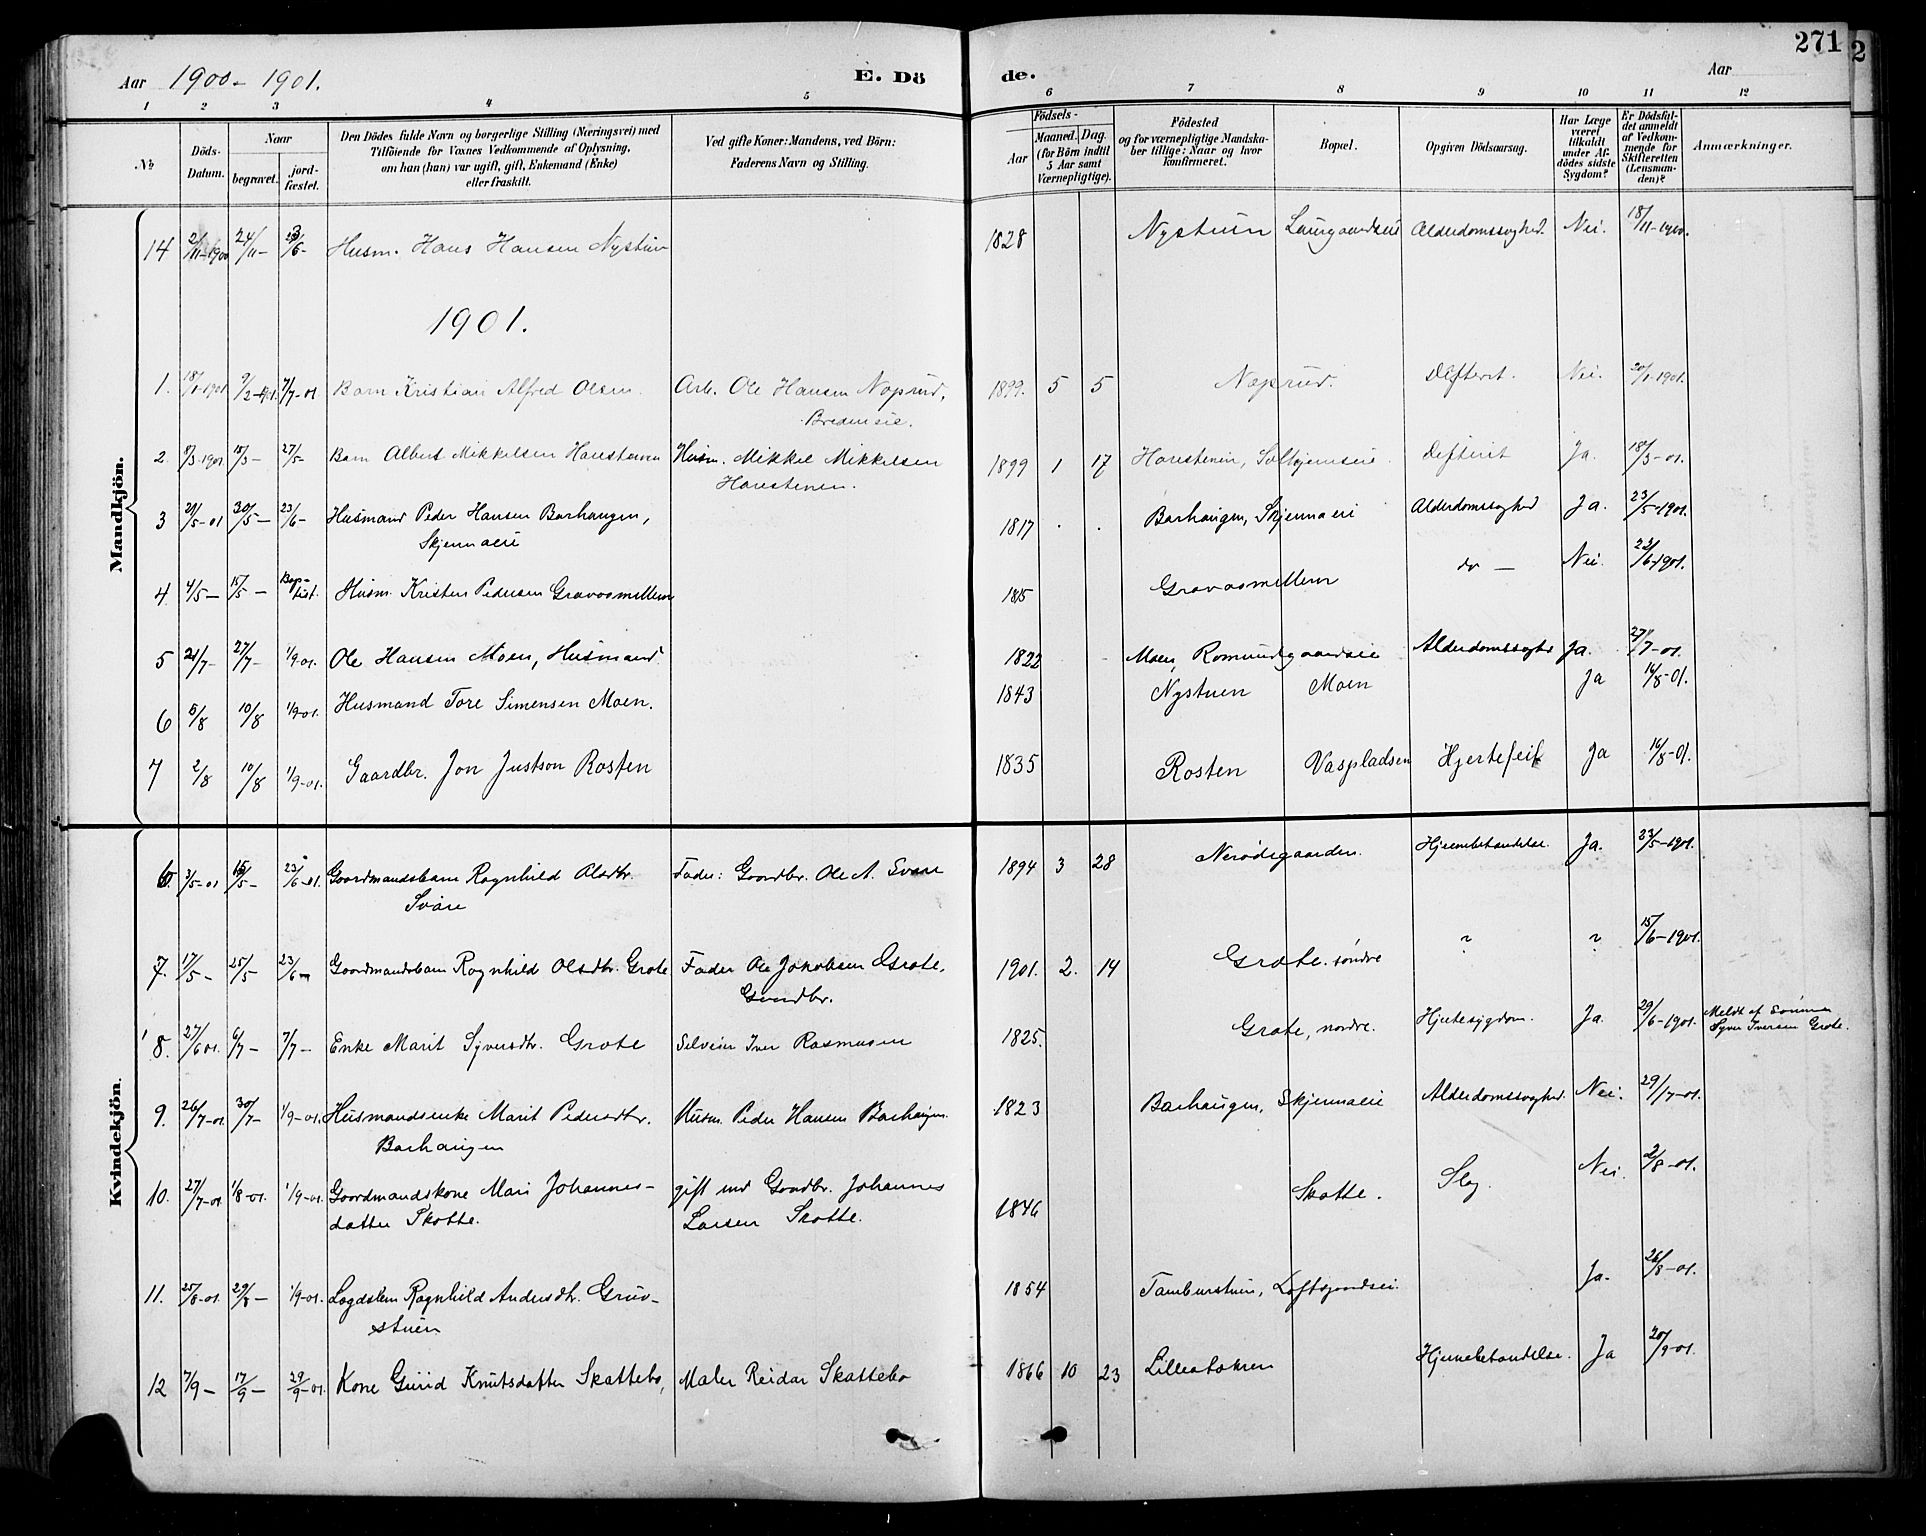 271
2
Aar 1900-1901.
E. Dö
de.
Aar
1 2 3 4 5 6 7 8 9 10 11 12
No
Döds-
Datum.
Naar
begravet.
jord-
fæstet.
Den Dödes fulde Navn og borgerlige Stilling (Næringsvei) med
Tilföiende for Voxnes Vedkommende af Oplysning,
om han (hun) var ugift, gift, Enkemand (Enke)
eller fraskilt.
Ved gifte Koner: Mandens, ved Börn:
Faderens Navn og Stilling.
Födsels-
Aar
Maaned. Dag.
(for Börn indtil
5 Aar samt
Værnepligtige).
Födested
og for værnepligtige Mandska-
ber tillige: Naar og hvor
konfirmeret.
Bopæl.
Opgiven Dödsaarsag.
Har Læge
været
tilkaldt
under Af-
dödes sidste
Sygdom?
Er Dödsfal-
det anmeldt
af Vedkom-
mende for
Skifteretten
(Lensman-
den)?
Anmærkninger.
Mandkjön.
14 2/11-1900 24/11- Husm. Hans Hansen Nystuen 1828 Nystuen Laurgaardseie Alderdomssvaghed. Nei. 18/11-1900.
1901.
1. 18/1-1901 9/2-1901. 7/7-01 Barn Kristian Alfred Olsen. Arb. Ole Hansen Noprud, 1899. 5 5 Noprud. Difterit. Nei. 20/1-1901.
Bredenseie.
2 9/3-1901 15/3- 27/5- Barn Albert Mikkelsen Harestenen Husm. Mikkel Mikkelsen 1899 1 17 Harestenen, Solhjemseie. Difterit Ja. 18/3-01.
Harestenen.
3 21/5-01 30/5- 23/6- Husmand Peder Hansen Barhaugen, 1817 Barhaugen, Skjennaeie Alderdomssvaghed Ja. 23/5-1901.
Skjennaeie
4. 4/5- 15/5- Bap-
tist. Husm. Kristen Pedersen Gravaasmellem 1815 Gravaasmellem do - Nei. 22/6-1901.
5 21/7- 27/7- 1/9-01. Ole Hansen Moen, Husmand 1822 Moen, Romundgaardseie Alderdomssvaghd Ja. 27/7-01.
6 5/8 10/8 1/9-01. Husmand Tore Simensen Moen. 1843 Nystuen Moen Ja 14/8-01.
7 2/8 10/8 1/9-01. Gaardbr. Jon Justson Rosten 1835 Rosten Vaspladsen Hjertefeil Ja 14/8-01.
Kvindekjön.
6. 3/5-01 15/5- 23/6-01. Gaardmandsbarn Ragnhild Olsdtr. Fader: Gaardbr. Ole A. Svare 1894 3 28 Nerødegaarden. Hjernebetændelse. Ja. 23/5-1901.
Svare
7. 17/5- 25/5 23/6- Gaardmandsbarn Ragnhild Olsdtr. Grote Fader Ole Jakobsen Grote, 1901. 2. 14 Grote, søndre ? ? 15/6-1901.
Gaardbr.
8. 27/6 01. 6/7- 7/7- Enke Marit Syversdtr. Grote Selveier Iver Rasmusen 1825. Grote, nordre. Hjertesygdom. Ja. 29/6-1901. Meldt af Sønnen
Syver Iversen Grote.
9. 26/7-01. 30/7- 1/9-01. Husmandsenke Marit Pedersdtr. Husm. Peder Hansen Barhaugen. 1823 Barhaugen, Skjennaeie Alderdomssvaghed. Nei. 29/7-01.
Barhaugen
10. 27/7-01 1/8-01. 1/9-01. Gaardmandskone Mari Johannes- gift med Gaardbr. Johannes 1846 Skotte. Slag. Nei. 2/8-01.
datter Skotte. Larsen Skotte.
11. 25/8-01. 29/8- 1/9-01. Lægdslem Ragnhild Andersdtr. Gruv- 1854 Tamburstuen, Loftsgaardseie. Ja. 26/8-01.
stuen
12 7/9- 17/9- 29/9-01. Kone Gurid Knutsdatter Skattebo, Maler Reidar Skattebo 1866 10 23 Hjernebetændelse. Ja 20/9-01.